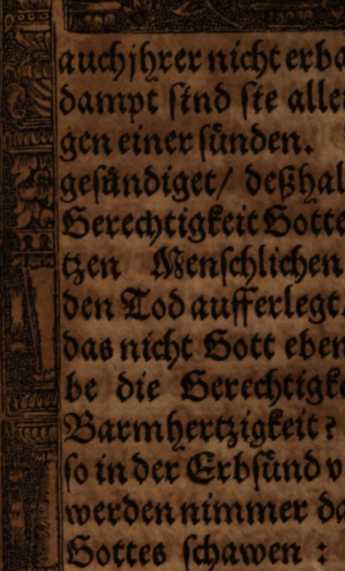 auch jhrer nicht erba
dampt sind sie alle
gen einer sünden.
gesündiget/ deßhal
Gerechtigkeit Gotte
tzen Menschlichen
den Tod aufferlegt.
das nicht Gott eben
be die Gerechtigke
Barmhertzigkeit?
so in der Erbsünd v
werden nimmer da
Gottes schawen: